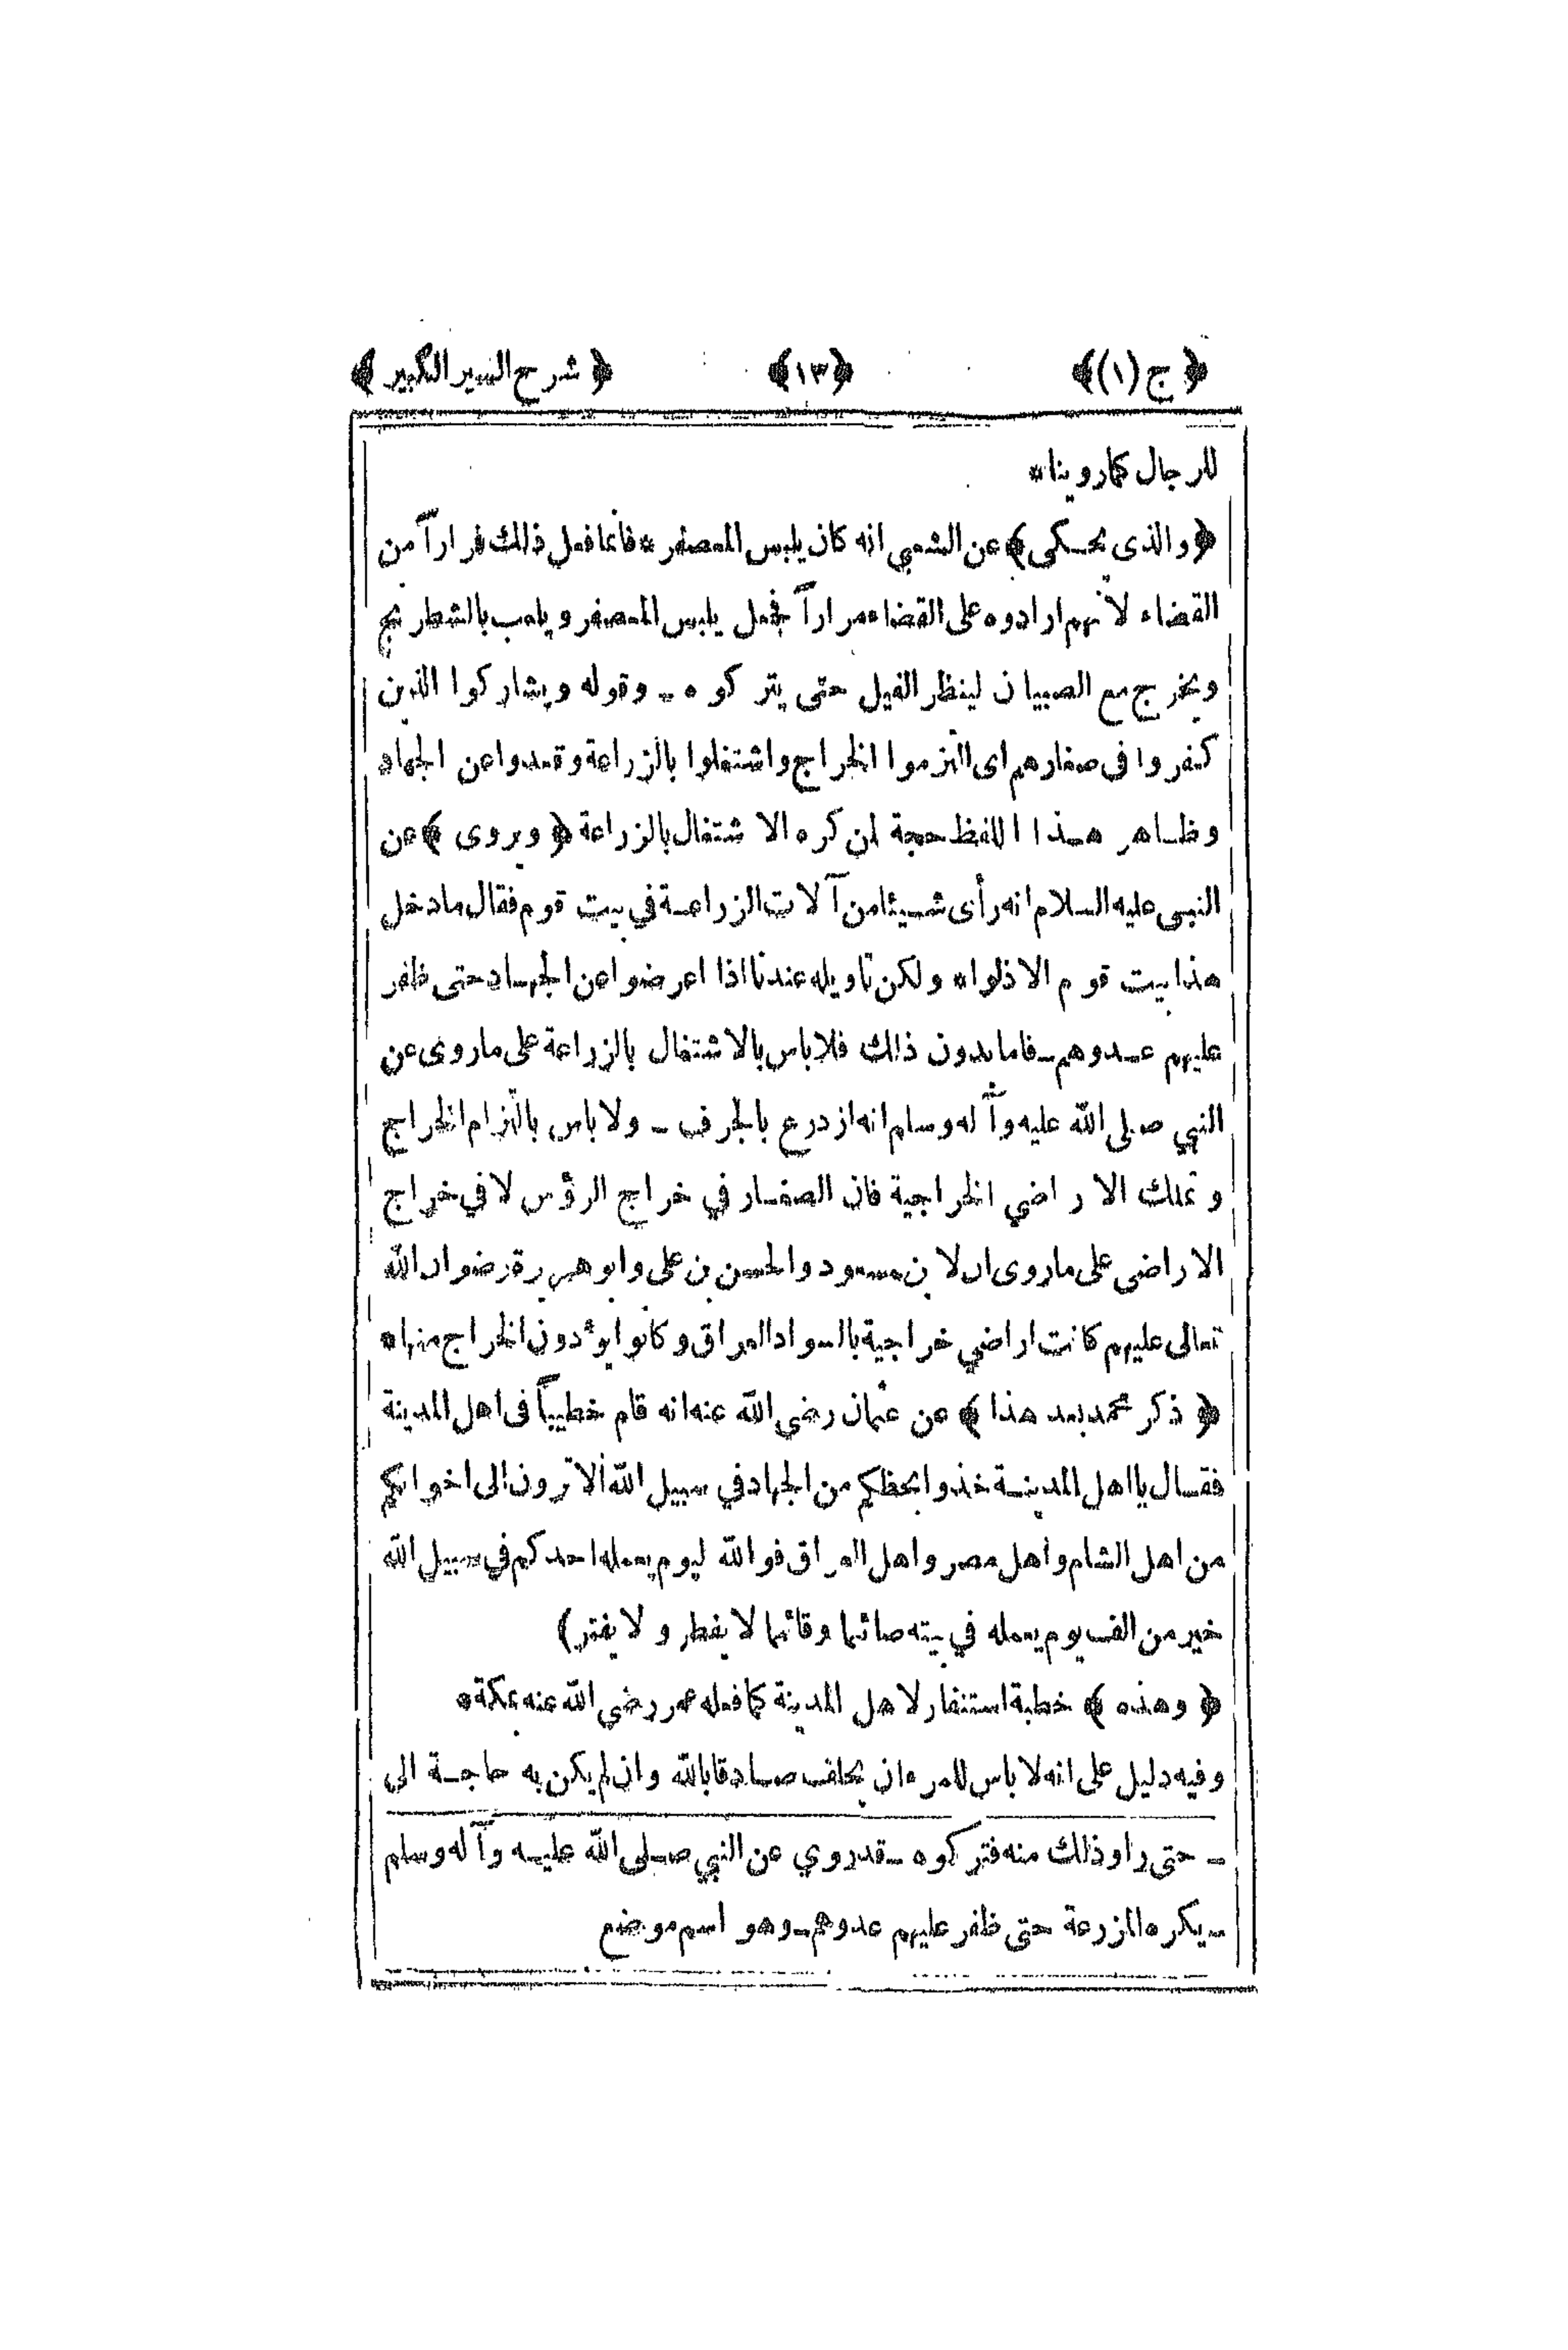 ﴿ ج (١) ﴾ ﴿ ١٣ ﴾ ﴿ شرح السير الكبير ﴾
للرجال كما روينا *
﴿ والذى يحكى ﴾ عن الشعبي انه كان يلبس المعصفر * فانما فعل ذلك فراراً من
القضاء لانهم ارادوه على القضاء مراراً فجعل يلبس المعصفر ويلعب بالشطرنج
ويخرج مع الصبيان لينظر الفيل حتى يتركوه ـ وقوله ويشاركوا الذين
كفروا فى صغارهم اى التزموا الخراج واشتغلوا بالزراعة وقعدوا عن الجهاد
وظاهر هذا اللفظ حجة لمن كره الاشتغال بالزراعة ﴿ ويروى ﴾ عن
النبى عليه السلام انه رأى شيئا من آلات الزراعة في بيت قوم فقال ما دخل
هذا بيت قوم الا ذلوا * ولكن تاويله عندنا اذا اعرضوا عن الجهاد حتى ظفر
عليهم عدوهم ـ فاما بدون ذلك فلا باس بالاشتغال بالزراعة على ما روى عن
النبي صلى الله عليه وآله وسلم انه ازدرع بالجرف ـ ولا باس بالتزام الخراج
وتملك الاراضي الخراجية فان الصغار في خراج الرؤس لا في خراج
الاراضى على ما روى ان لابن مسعود والحسن بن على وابو هريرة رضوان الله
تعالى عليهم كانت اراضي خراجية بالسواد العراق وكانوا يؤدون الخراج منها *
﴿ ذكر محمد بعد هذا ﴾ عن عثمان رضي الله عنه انه قام خطيباً فى اهل المدينة
فقال يا اهل المدينة خذوا بحظكم من الجهاد في سبيل الله ألا ترون الى اخوانكم
من اهل الشام واهل مصر واهل العراق فوالله ليوم يعمله احدكم في سبيل الله
خير من الف يوم يعمله في بيته صائما وقائما لا يفطر ولا يفتر)
﴿ وهذه ﴾ خطبة استنفار لاهل المدينة كما فعله عمر رضي الله عنه بمكة *
وفيه دليل على انه لا باس للمرء ان يحلف صادقا بالله وان لم يكن به حاجة الى
ـ حتى راو ذلك منه فتركوه ـ قد روي عن النبي صلى الله عليه وآله وسلم
ـ يكره المزرعة حتى ظفر عليهم عدوهم ـ وهو اسم موضع